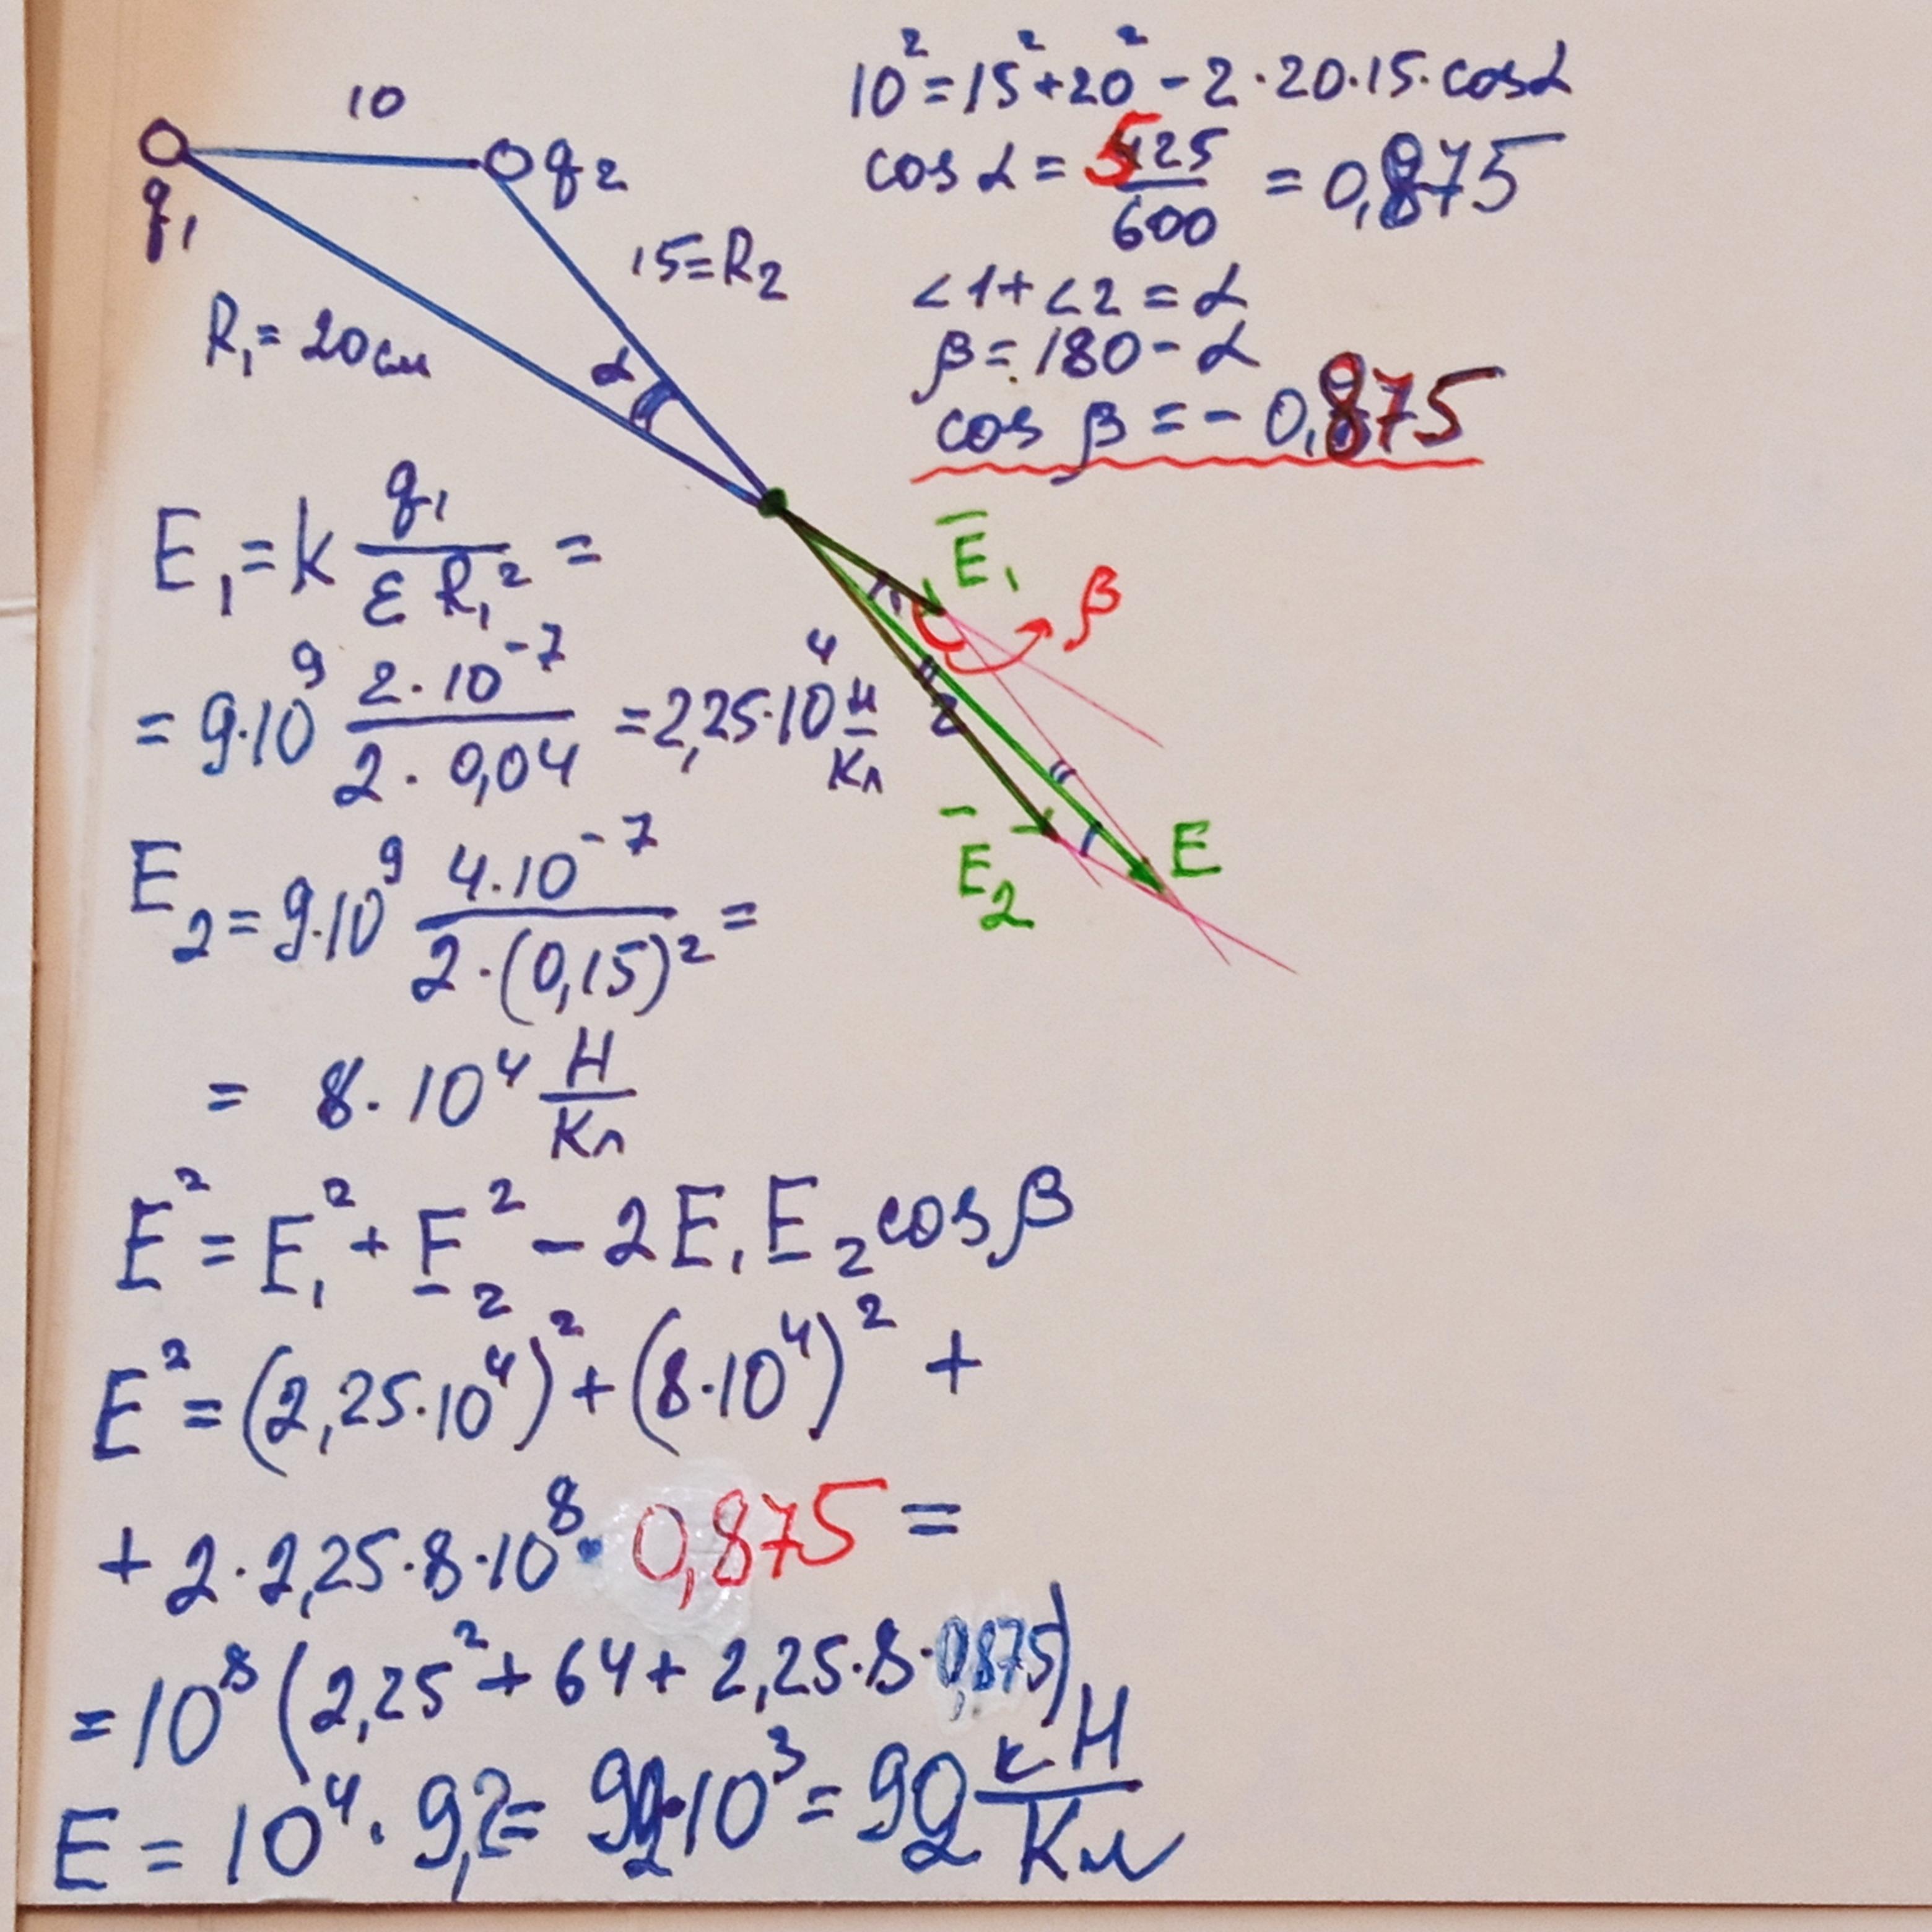 10
q₁
q₂
15=R₂
R₁= 20см
α
10² = 15² + 20² - 2·20·15·cosα
cos α = 525/600 = 0,875
<1+<2 = α
β = 180 - α
cos β = - 0,875
E₁
β
1
2
E₂
E
E₁ = k q₁/(ε R₁²) =
= 9·10⁹ (2·10⁻⁷)/(2·0,04) = 2,25·10⁴ Н/Кл
E₂ = 9·10⁹ (4·10⁻⁷)/(2·(0,15)²) =
= 8·10⁴ Н/Кл
E² = E₁² + E₂² - 2E₁E₂cosβ
E² = (2,25·10⁴)² + (8·10⁴)² +
+ 2·2,25·8·10⁸· 0,875 =
= 10⁸ (2,25² + 64 + 2,25·8·0,875)
E = 10⁴· 9,2 = 92·10³ = 92 кН/Кл